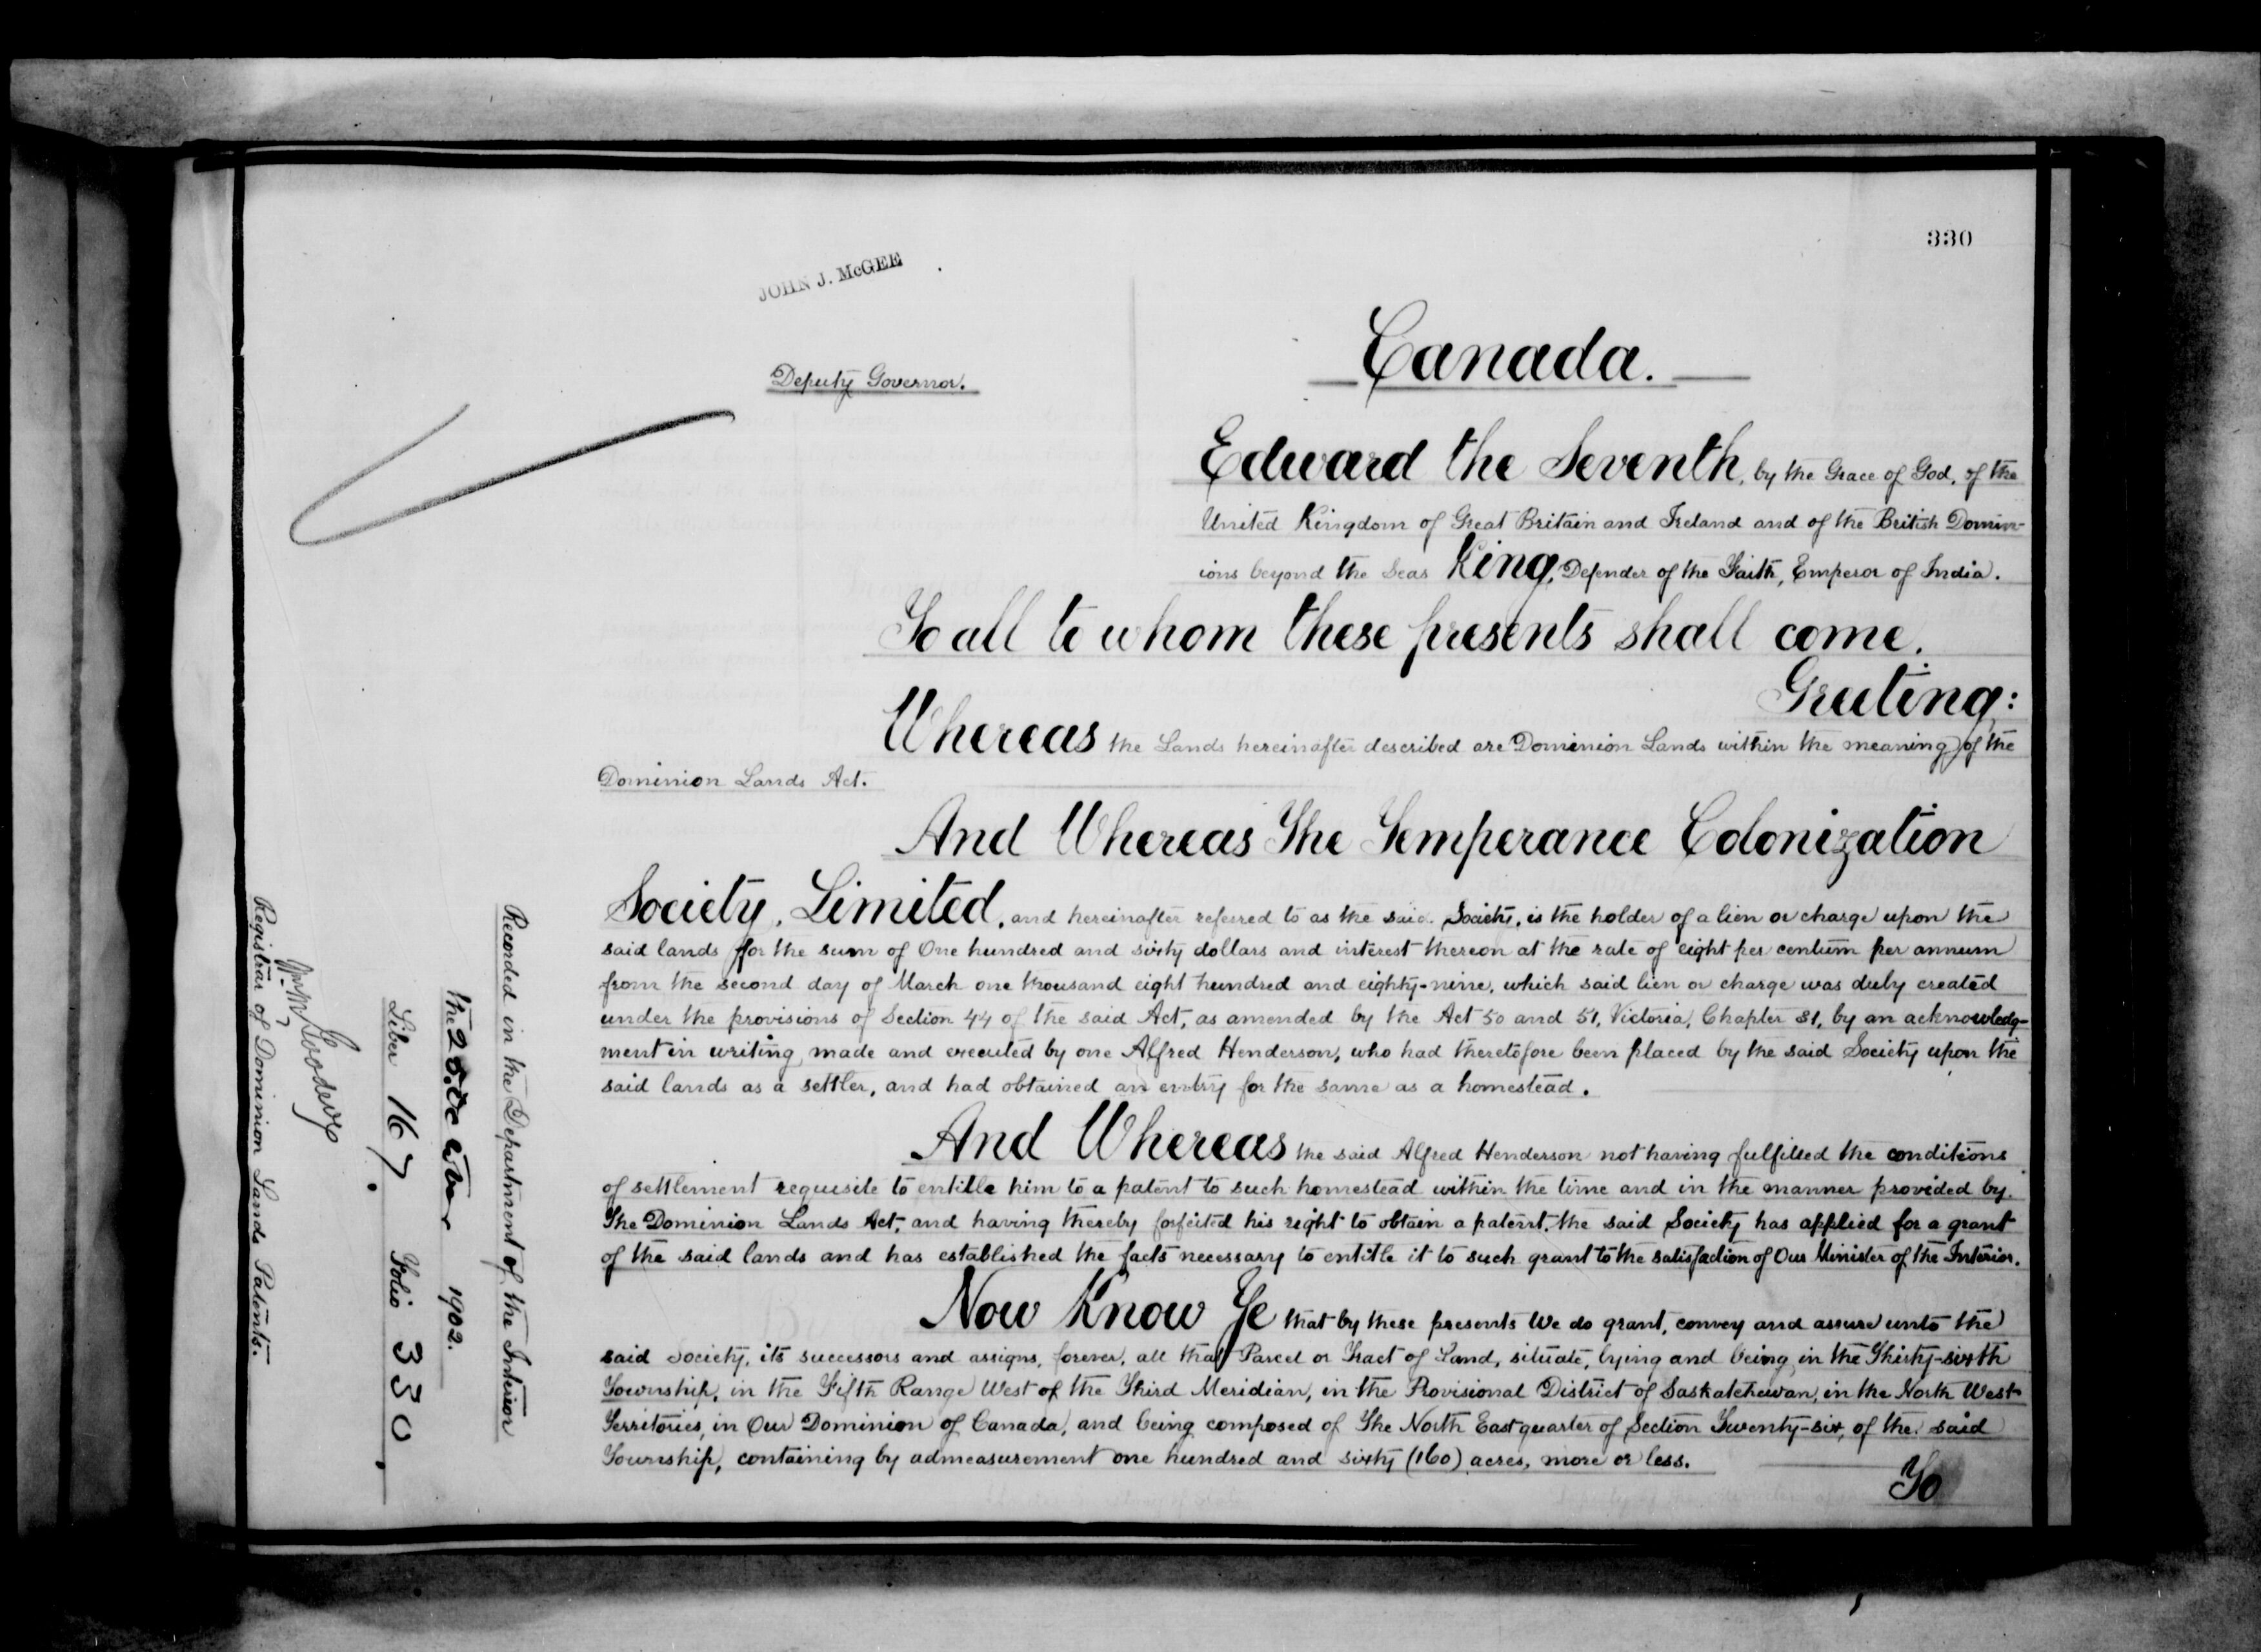 330
JOHN J. McGEE
Deputy Governor.
Canada.
Edward the Seventh, by the Grace of God, of the
United Kingdom of Great Britain and Ireland and of the British Domin-
ions beyond the Seas King, Defender of the Faith, Emperor of India.
To all to whom these presents shall come.
Greeting:
Whereas the Lands hereinafter described are Dominion Lands within the meaning of the
Dominion Lands Act.
And Whereas The Temperance Colonization
Society, Limited, and hereinafter referred to as the said Society, is the holder of a lien or charge upon the
said lands for the sum of One hundred and sixty dollars and interest thereon at the rate of eight per centum per annum
from the second day of March one thousand eight hundred and eighty-nine, which said lien or charge was duly created
under the provisions of Section 44 of the said Act, as amended by the Act 50 and 51, Victoria, Chapter 31, by an acknowledg-
ment in writing made and executed by one Alfred Henderson, who had theretofore been placed by the said Society upon the
said lands as a settler, and had obtained an entry for the same as a homestead.
And Whereas the said Alfred Henderson not having fulfilled the conditions
of settlement requisite to entitle him to a patent to such homestead within the time and in the manner provided by
The Dominion Lands Act, and having thereby forfeited his right to obtain a patent, the said Society has applied for a grant
of the said lands and has established the facts necessary to entitle it to such grant to the satisfaction of Our Minister of the Interior.
Now Know Ye that by these presents We do grant, convey and assure unto the
said Society, its successors and assigns, forever, all that Parcel or Tract of Land, situate, lying and being in the Thirty-sixth
Township, in the Fifth Range West of the Third Meridian, in the Provisional District of Saskatchewan, in the North West
Territories, in Our Dominion of Canada, and being composed of The North East quarter of Section Twenty-six, of the said
Township, containing by admeasurement one hundred and sixty (160) acres, more or less.
To
Recorded in the Department of the Interior
the 1902.
Liber 167. Folio 330.
Registrar of Dominion Lands Patents.